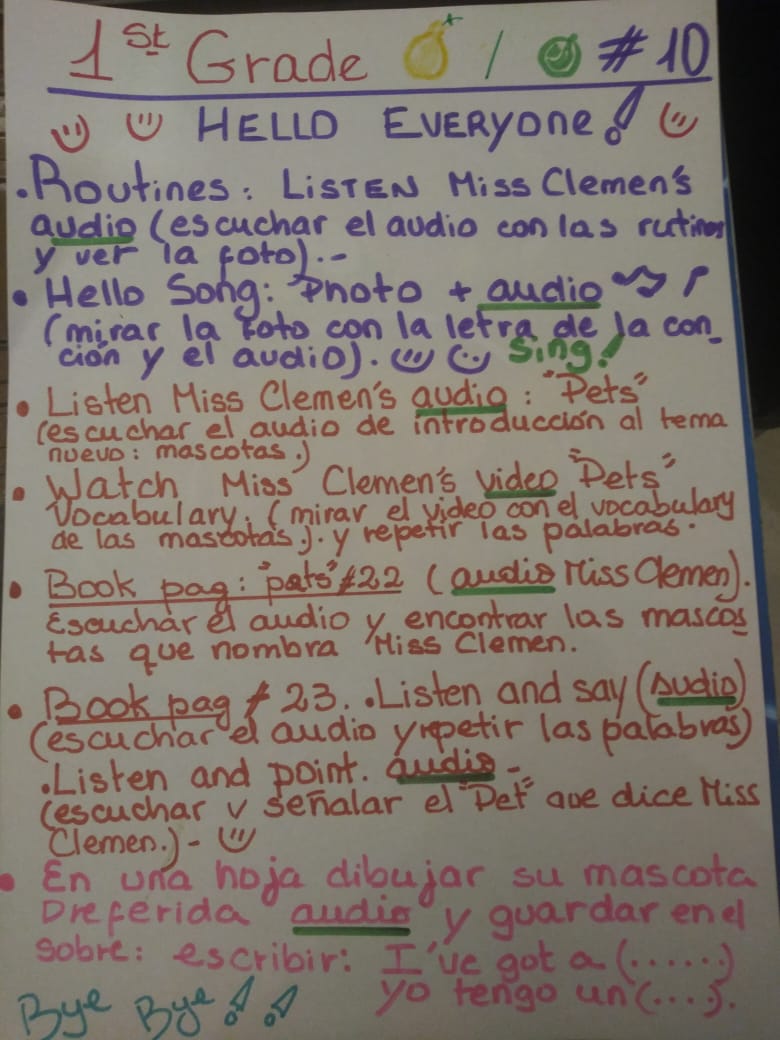 1st Grade / #10
HELLO EVERYONE!
. Routines: LISTEN Miss Clemen's
audio (escuchar el audio con las rutinas
y ver la foto).-
• Hello Song: Photo + audio
(mirar la foto con la letra de la can_
ción y el audio). Sing!
• Listen Miss Clemen's audio: "Pets"
(escuchar el audio de introducción al tema
nuevo: mascotas.)
• Watch Miss Clemen's video "Pets"
Vocabulary. (mirar el video con el vocabulary
de las mascotas). y repetir las palabras.
• Book pag: "pets" #22 (audio Miss Clemen).
Escuchar el audio y encontrar las mascos
tas que nombra Miss Clemen.
• Book pag # 23. .Listen and say (Audio)
(escuchar el audio y repetir las palabras)
.Listen and point. audio -
(escuchar y señalar el "Pet" que dice Miss
Clemen.)-
• En una hoja dibujar su mascota
preferida audio y guardar en el
sobre: escribir: I've got a (......)
yo tengo un (....).
Bye Bye!!